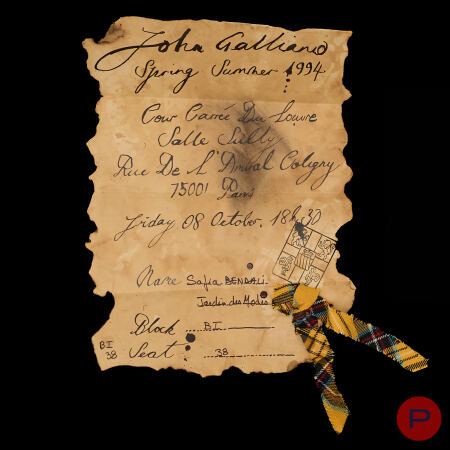 John Galliano
Spring Summer 1994
Cour Carrée Du Louvre
Salle Sully
Rue De L'Amiral Coligny
75001 Paris
Friday 08 October. 18h30
Name Safia BENDALI
Jardin des Modes
Block BI
BI
38
Seat: 38
P